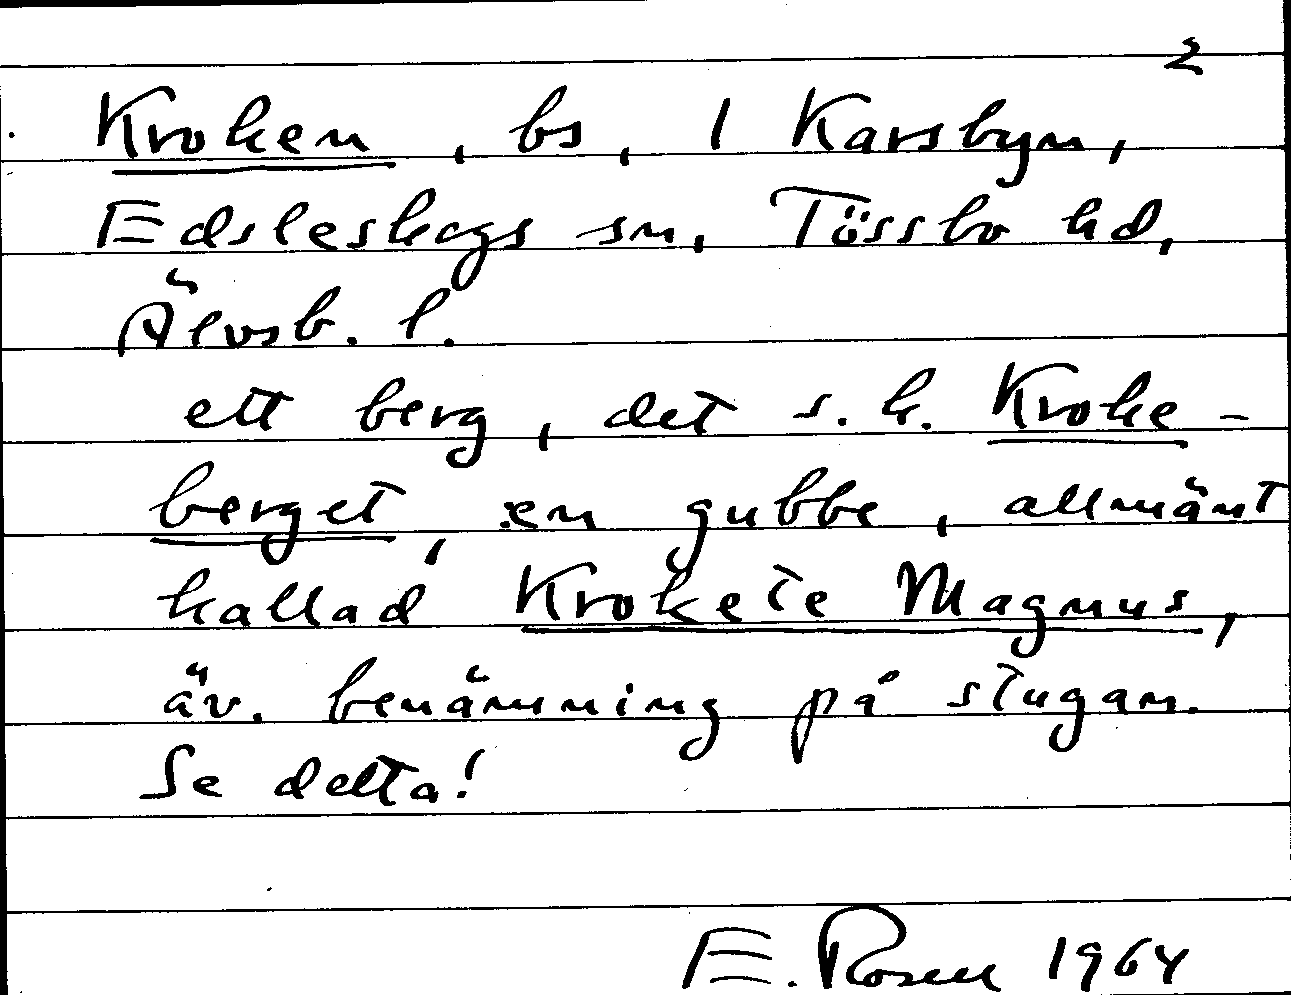 2
Kroken, bs, 1 Karsbyn,
Edsleskogs sn, Tössbo hd,
Älvsb. l.
ett berg, det s.k. Kroke-
berget, en gubbe, allmänt
kallad Krokete Magnus,
äv. benämning på stugan.
Se detta!
E. Rosen 1964